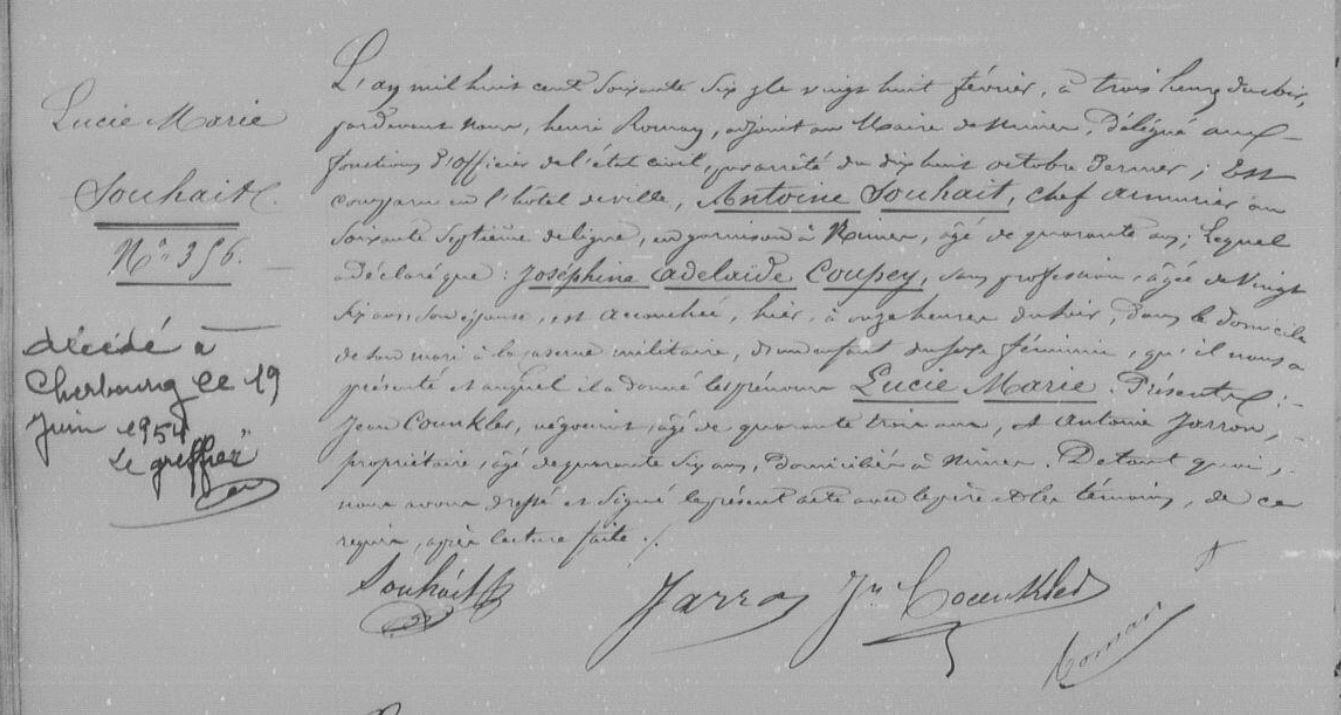 Lucie Marie
Souhait.
N° 356.
décédé à
Cherbourg le 19
Juin 1954
Le greffier
L'an mil huit cent soixante six & le vingt huit février, à trois heures du soir,
pardevant nous, henri Roman, adjoint au Maire de Nimes, délégué aux
fonctions d'officier de l'état civil, par arrêté du dix huit octobre dernier ; Est
comparu en l'hôtel de ville, Antoine Souhait, chef armurier au
soixante septième de ligne, en garnison à Nimes, âgé de quarante ans ; Lequel
a déclaré que : Joséphine adelaïde Coupey, sans profession, âgée de vingt
six ans, son épouse, est accouchée, hier, à onze heures du soir, dans le domicile
de son mari à la caserne militaire, d'un enfant du sexe féminin, qu'il nous a
présenté et auquel il a donné les prénoms Lucie Marie. Présents :
Jean Counkler, négociant, âgé de quarante trois ans, et Antoine Jarron,
propriétaire, âgé de quarante six ans, domiciliés à Nimes. De tout quoi,
nous avons dressé et signé le présent acte avec le père et les témoins, de ce
requis, après lecture faite ./.
Souhait
Jarron Jn Counkler
Roman